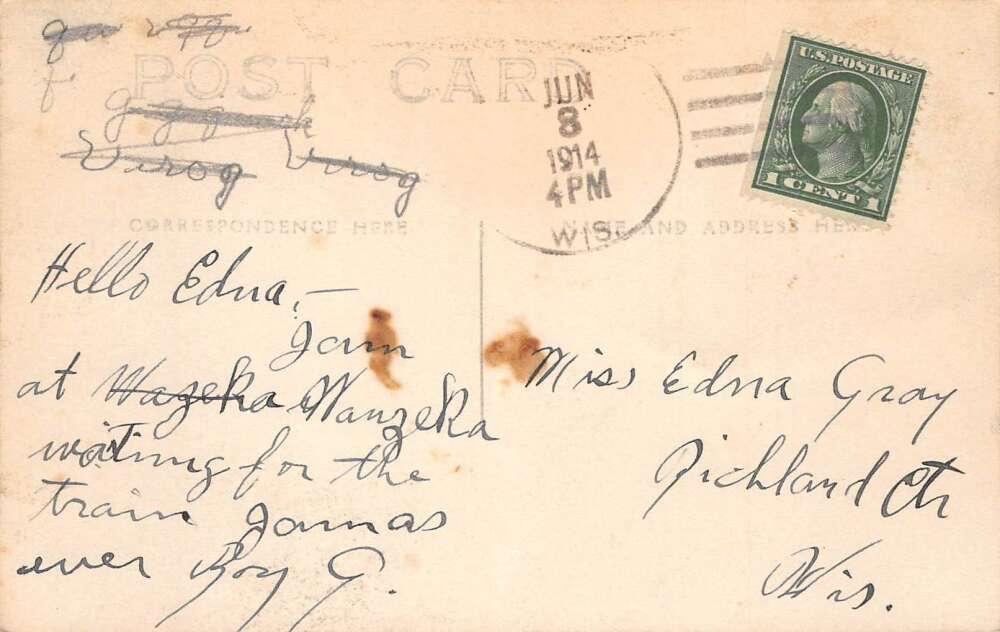 POST CARD
Virog Virog
JUN
8
1914
4 PM
WIS.
U.S. POSTAGE
1 CENT 1
CORRESPONDENCE HERE
NAME AND ADDRESS HERE
Hello Edna, —
I am
at Wazeka Wauzeka
waiting for the
train I am as
ever Roy G.
Miss Edna Gray
Richland Ctr
Wis.